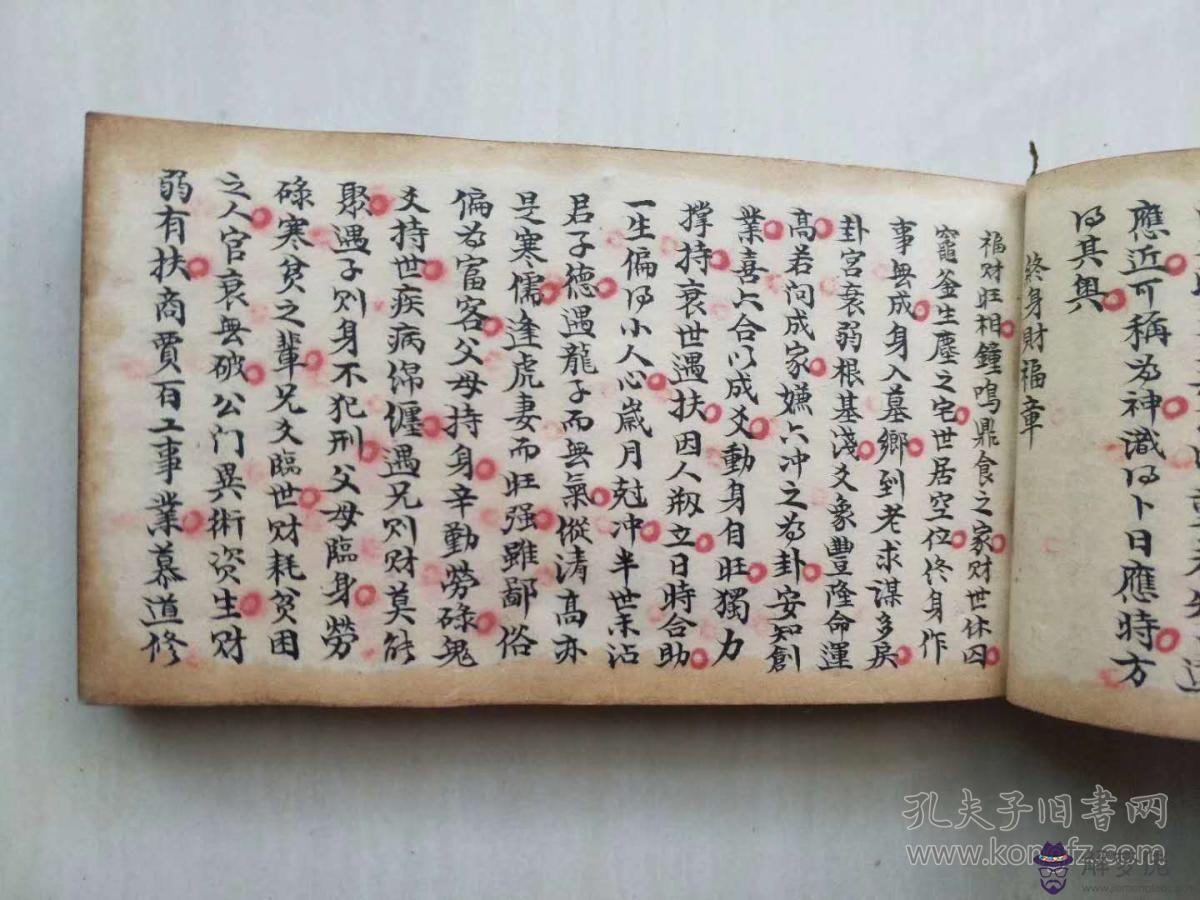 應近可稱為神識㝵卜日應時方
㝵其奥
終身財福章
福财旺相鐘鳴鼎食之家财世休囚
竈釜生塵之宅世居空位終身作
事無成身入墓鄉到老求謀多戾
卦宫衰弱根基淺爻象豐隆命運
高若问成家嫌六冲之為卦安知創
業喜六合以成爻動身自旺獨力
撑持衰世遇扶因人剏立日時合助
一生偏㝵小人心歲月尅冲半世未沾
君子德遇龍子而無氣縱清高亦
是寒儒逢虎妻而旺强雖鄙俗
偏為富客父母持身辛勤勞碌鬼
爻持世疾病綿纏遇兄则财莫能
聚遇子则身不犯刑父母臨身勞
碌寒贫之輩兄爻臨世财耗贫困
之人官衰無破公门異術资生财
弱有扶商賈百工事業慕道修
孔夫子旧书网
www.kongfz.com
解梦虎